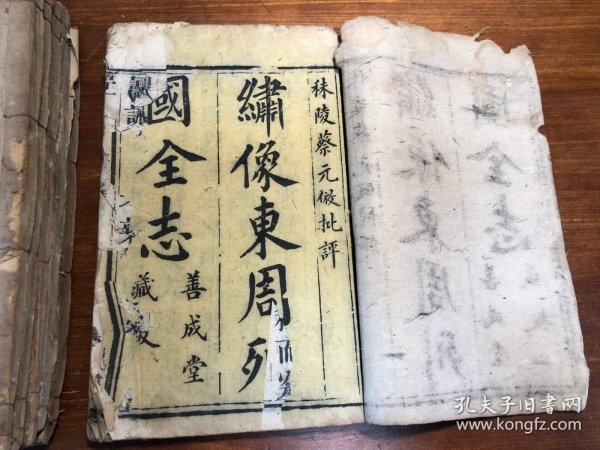 秣陵蔡元倣批評
繡像東周列
國全志
善成堂
藏板
孔夫子旧书网
www.kongfz.com